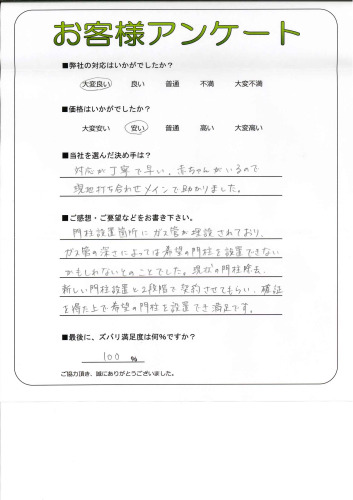 お客様アンケート
■弊社の対応はいかがでしたか？
大変良い 良い 普通 不満 大変不満
■価格はいかがでしたか？
大変安い 安い 普通 高い 大変高い
■当社を選んだ決め手は？
対応が丁寧で早い、赤ちゃんがいるので
現地打ち合わせメインで助かりました。
■ご感想・ご要望などをお書き下さい。
門柱設置箇所にガス管が埋設されており、
ガス管の深さによっては希望の門柱を設置できない
かもしれないとのことでした。現状の門柱除去、
新しい門柱設置と2段階で契約させてもらい、確証
を得た上で希望の門柱を設置でき満足です。
■最後に、ズバリ満足度は何％ですか？
100 ％
ご協力頂き、誠にありがとうございました。